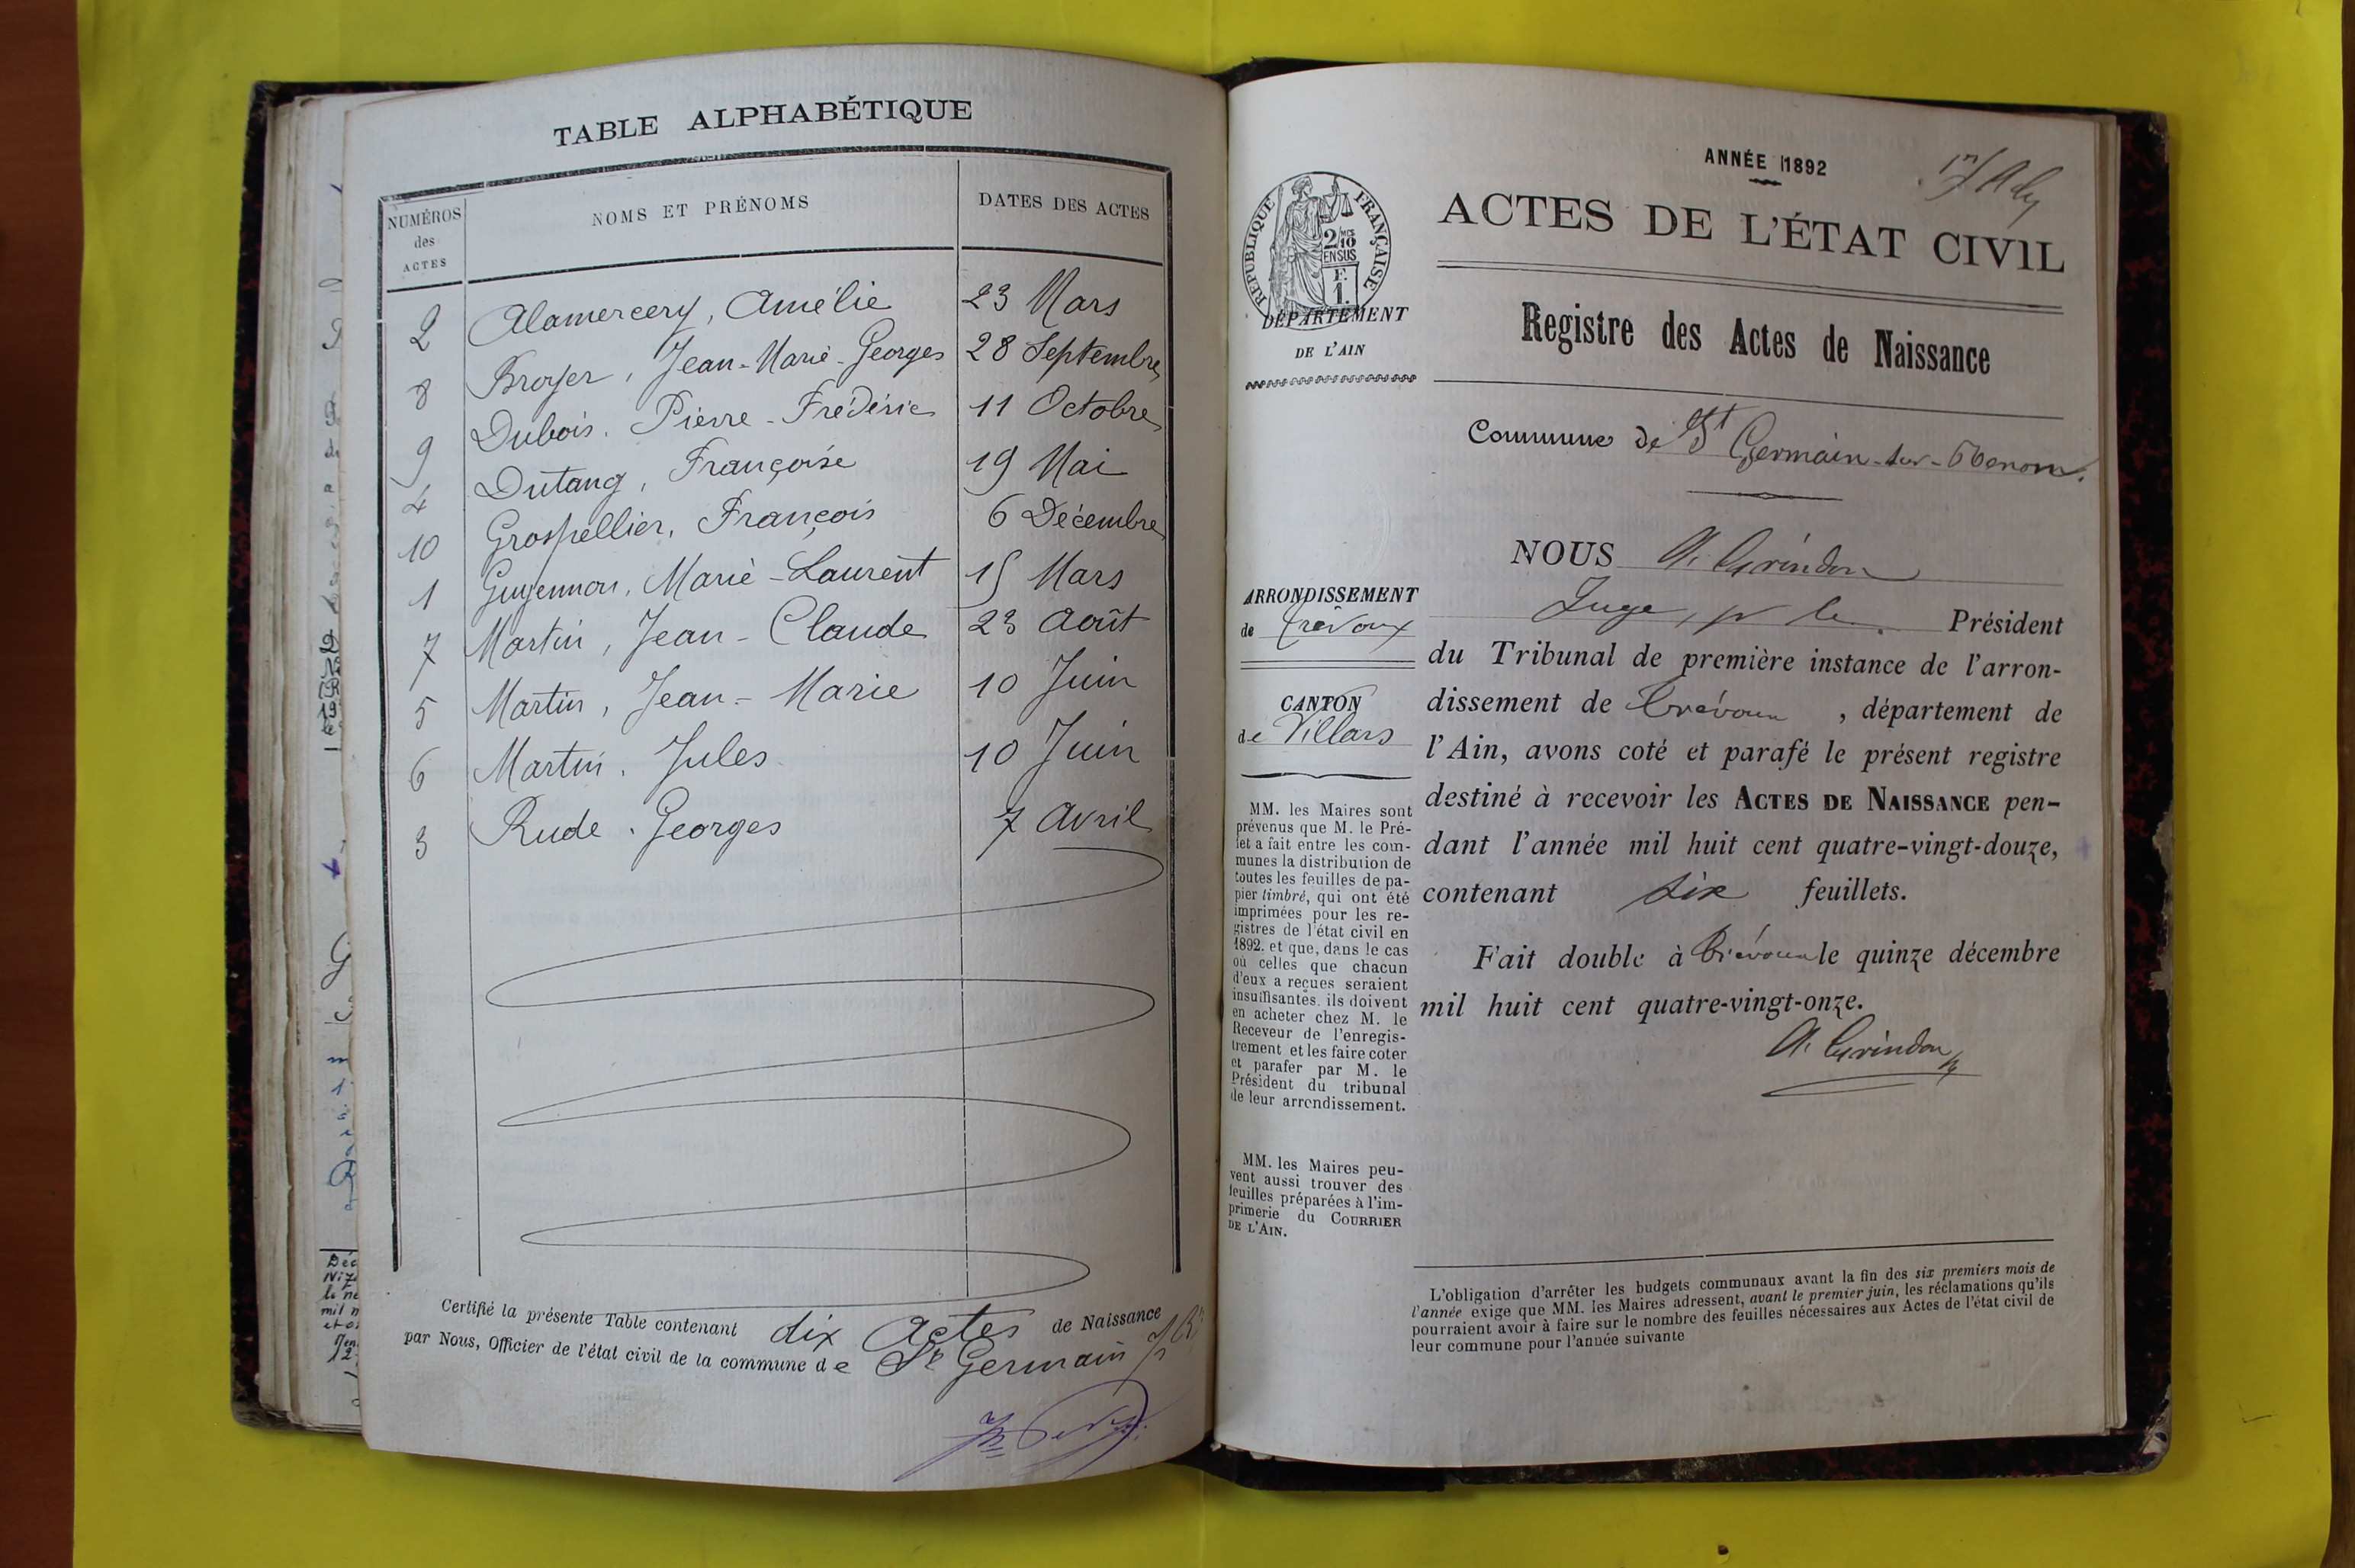 TABLE ALPHABÉTIQUE
NUMÉROS des ACTES
NOMS ET PRÉNOMS
DATES DES ACTES
2 Alamercery, Amélie 23 Mars
8 Broyer, Jean-Marie-Georges 28 Septembre
9 Dubois. Pierre-Frédéric 11 Octobre
4 Dutang, Françoise 19 Mai
10 Grospellier, François 6 Décembre
1 Guyennon, Marie-Laurent 15 Mars
7 Martin, Jean-Claude 23 Août
5 Martin, Jean-Marie 10 Juin
6 Martin. Jules 10 Juin
3 Rude. Georges 7 Avril
Certifié la présente Table contenant dix Actes de Naissance
par Nous, Officier de l'état civil de la commune de St Germain
ANNÉE 1892
ACTES DE L'ÉTAT CIVIL
RÉPUBLIQUE FRANÇAISE
2/10 MES
EN SUS
F.
1.
DÉPARTEMENT
DE L'AIN
Registre des Actes de Naissance
Commune de St Germain-sur-Renom.
ARRONDISSEMENT
de Trévoux
CANTON
de Villars
MM. les Maires sont
prévenus que M. le Pré-
fet a fait entre les com-
munes la distribution de
toutes les feuilles de pa-
pier timbré, qui ont été
imprimées pour les re-
gistres de l'état civil en
1892. et que, dans le cas
où celles que chacun
d'eux a reçues seraient
insuffisantes, ils doivent
en acheter chez M. le
Receveur de l'enregis-
trement et les faire coter
et parafer par M. le
Président du tribunal
de leur arrondissement.
MM. les Maires peu-
vent aussi trouver des
feuilles préparées à l'im-
primerie du COURRIER
DE L'AIN.
NOUS A. Grindon
Juge, pr le. Président
du Tribunal de première instance de l'arron-
dissement de Trévoux, département de
l'Ain, avons coté et parafé le présent registre
destiné à recevoir les ACTES DE NAISSANCE pen-
dant l'année mil huit cent quatre-vingt-douze,
contenant six feuillets.
Fait double à Trévoux le quinze décembre
mil huit cent quatre-vingt-onze.
A. Grindon
L'obligation d'arrêter les budgets communaux avant la fin des six premiers mois de
l'année exige que MM. les Maires adressent, avant le premier juin, les réclamations qu'ils
pourraient avoir à faire sur le nombre des feuilles nécessaires aux Actes de l'état civil de
leur commune pour l'année suivante